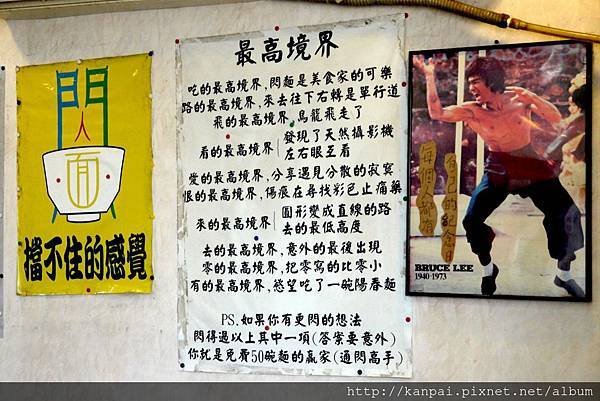 閆
人
面
擋不住的感覺
最高境界
吃的最高境界,悶麵是美食家的可樂
路的最高境界,來去往下右轉是單行道
飛的最高境界,烏龍飛走了
看的最高境界
發現了天然攝影機
左右眼互看
愛的最高境界,分享遇見分散的寂寞
恨的最高境界,傷痕在尋找彩色止痛藥
來的最高境界
圓形變成直線的路
去的最低高度
去的最高境界,意外的最後出現
零的最高境界,把零寫的比零小
有的最高境界,慾望吃了一碗陽春麵
PS.如果你有更悶的想法
悶得過以上其中一項(答案要意外)
你就是免費50碗麵的贏家(通悶高手)
每個人都有
自己的紀念日
BRUCE LEE
1940-1973
http://kanpai.pixnet.net/album